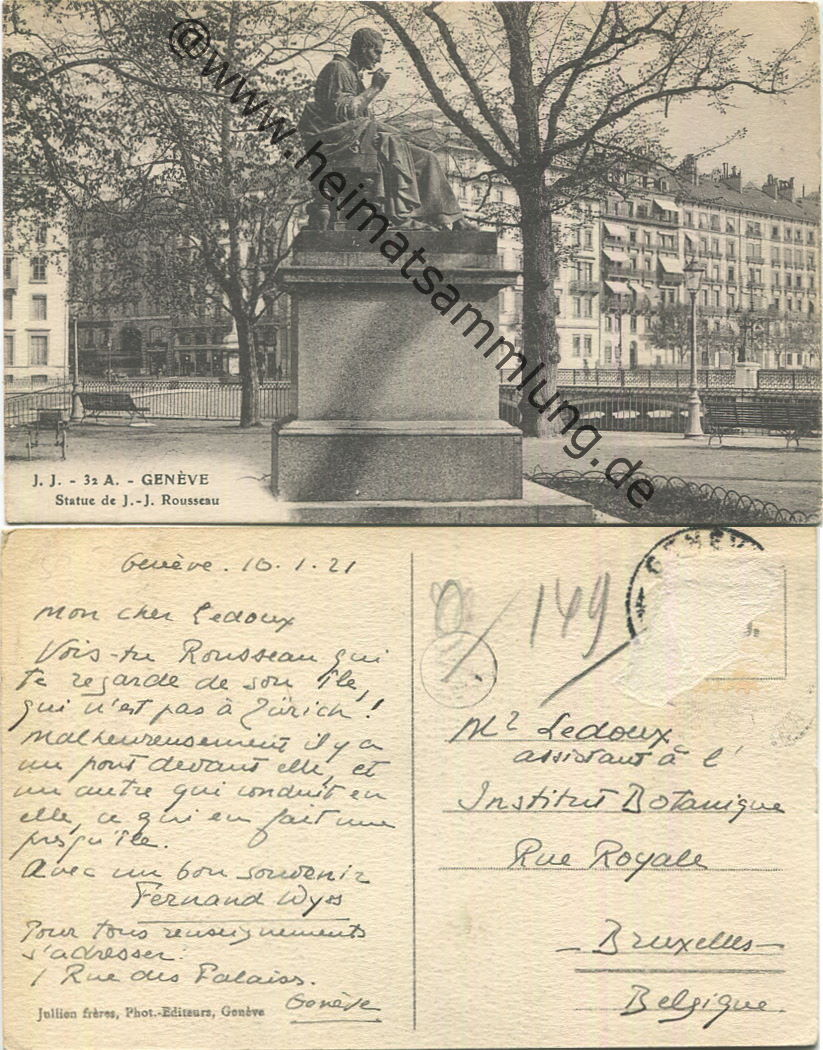 @www.heimatsammlung.de
J. J. - 32 A. - GENÈVE
Statue de J.-J. Rousseau
Genève. 10.1.21
Mon cher Ledoux
Vois-tu Rousseau qui
te regarde de son île,
qui n'est pas à Zürich!
Malheureusement il y a
un pont devant elle, et
un autre qui conduit en
elle, ce qui en fait une
presqu'île.
Avec un bon souvenir
Fernand Wyss
Pour tous renseignements
s'adresser:
1 Rue des Palaiss.
Genève
Jullien frères, Phot.-Editeurs, Genève
GENÈV
149
Mr Ledoux
assistant à l'
Institut Botanique
Rue Royale
- Bruxelles -
Belgique